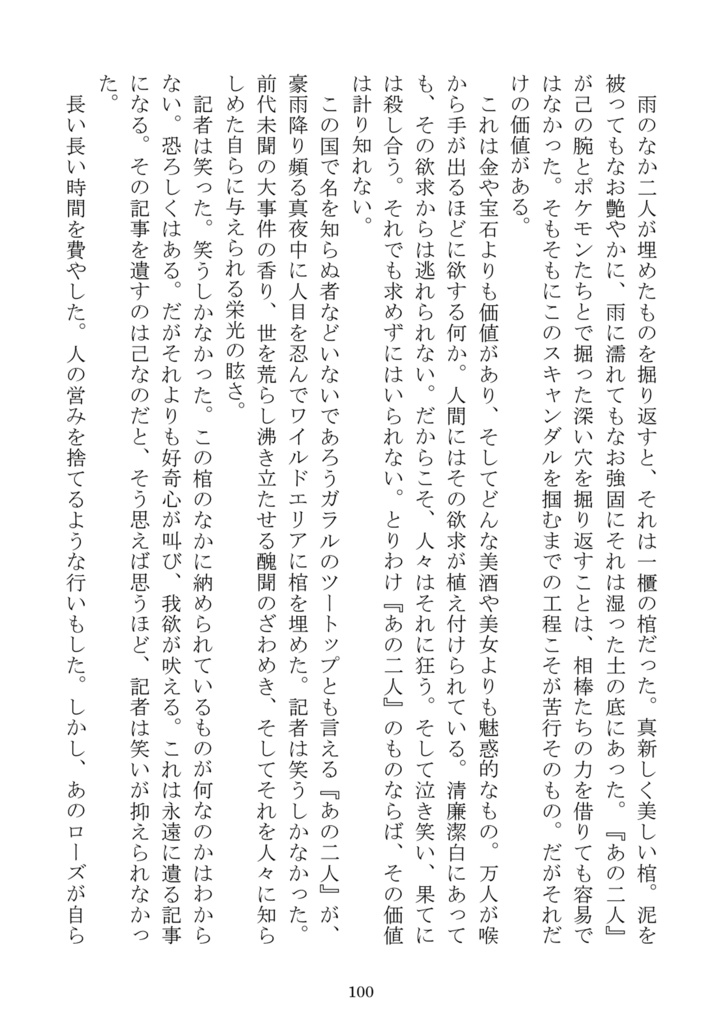 雨のなか二人が埋めたものを掘り返すと、それは一櫃の棺だった。真新しく美しい棺。泥を
被ってもなお艶やかに、雨に濡れてもなお強固にそれは湿った土の底にあった。『あの二人』
が己の腕とポケモンたちとで掘った深い穴を掘り返すことは、相棒たちの力を借りても容易で
はなかった。そもそもにこのスキャンダルを掴むまでの工程こそが苦行そのもの。だがそれだ
けの価値がある。
　これは金や宝石よりも価値があり、そしてどんな美酒や美女よりも魅惑的なもの。万人が喉
から手が出るほどに欲する何か。人間にはその欲求が植え付けられている。清廉潔白にあって
も、その欲求からは逃れられない。だからこそ、人々はそれに狂う。そして泣き笑い、果てに
は殺し合う。それでも求めずにはいられない。とりわけ『あの二人』のものならば、その価値
は計り知れない。
　この国で名を知らぬ者などいないであろうガラルのツートップとも言える『あの二人』が、
豪雨降り頻る真夜中に人目を忍んでワイルドエリアに棺を埋めた。記者は笑うしかなかった。
前代未聞の大事件の香り、世を荒らし沸き立たせる醜聞のざわめき、そしてそれを人々に知ら
しめた自らに与えられる栄光の眩さ。
　記者は笑った。笑うしかなかった。この棺のなかに納められているものが何なのかはわから
ない。恐ろしくはある。だがそれよりも好奇心が叫び、我欲が吠える。これは永遠に遺る記事
になる。その記事を遺すのは己なのだと、そう思えば思うほど、記者は笑いが抑えられなかっ
た。
　長い長い時間を費やした。人の営みを捨てるような行いもした。しかし、あのローズが自ら
100